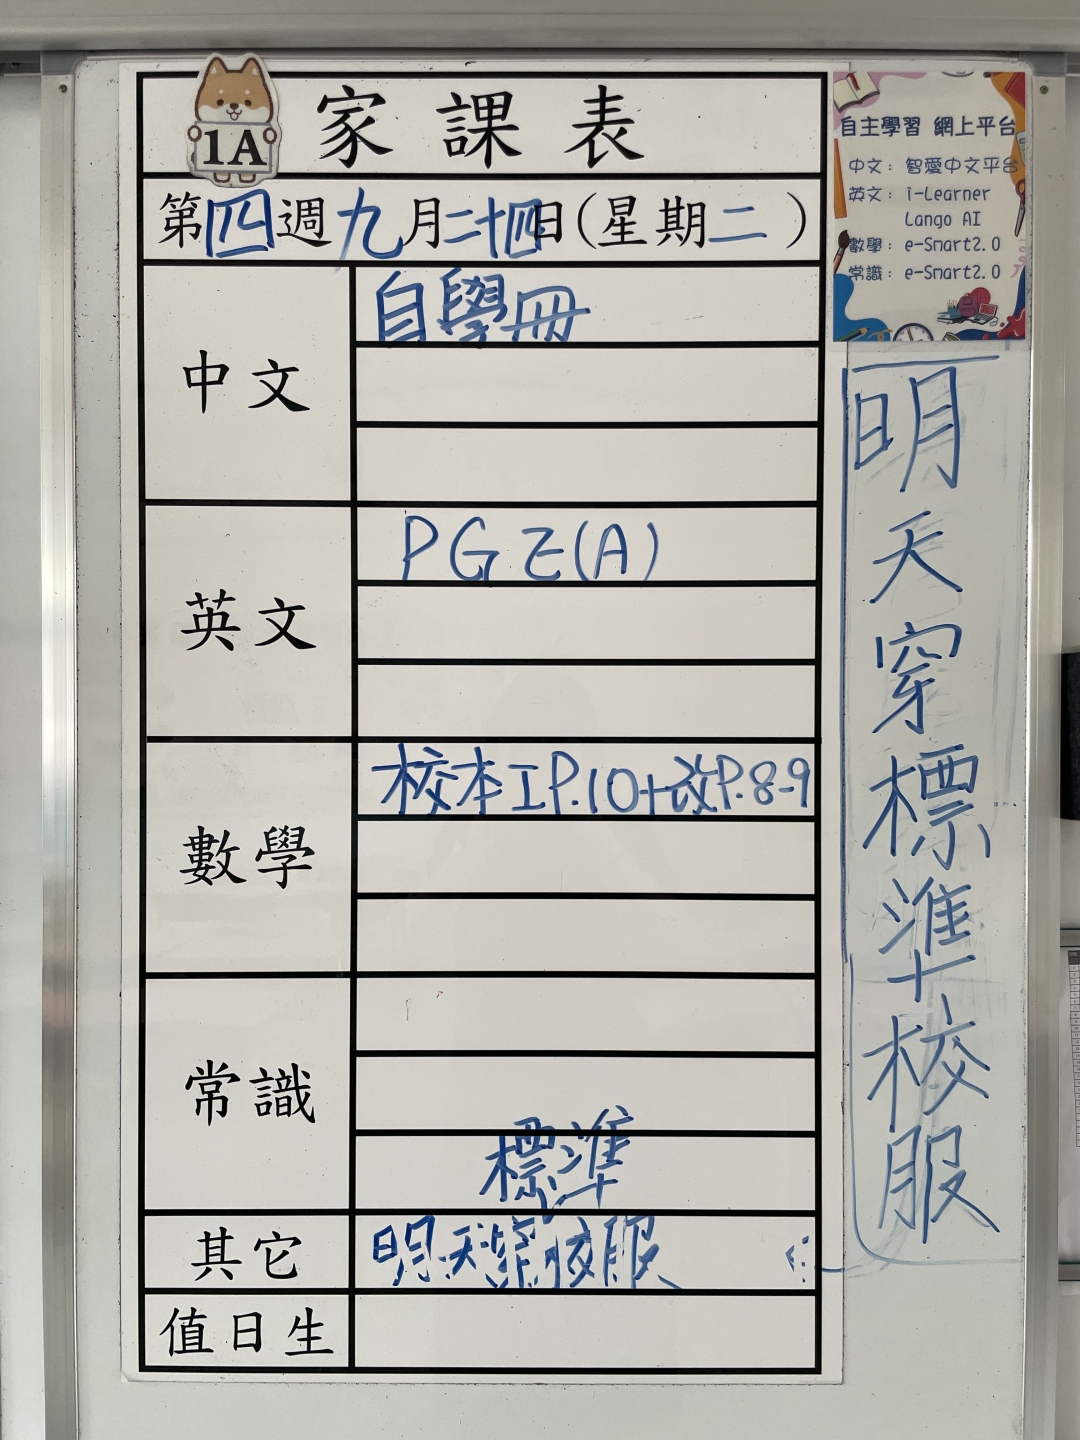 1A
家課表
第四週九月二十四日(星期二)
中文
自學冊
英文
PG乙(A)
數學
校本工P.10+改P.8-9
常識
標準
其它
明天穿校服
值日生
自主學習 網上平台
中文：智愛中文平台
英文：i-Learner
Lango AI
數學：e-Smart2.0
常識：e-Smart2.0
明天穿標準校服